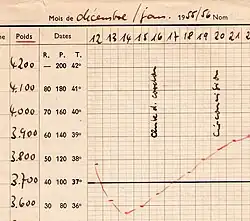 Mois de décembre / janv. 1955/56 Nom
Poids Dates
R. P. T. 12 13 14 15 16 17 18 19 20 21 22
4.200 — 200 42°
4.100 80 180 41°
4.000 70 160 40°
3.900 60 140 39°
3.800 50 120 38°
3.700 40 100 37°
3.600 30 80 36°
Chute d. cordon
Circoncision